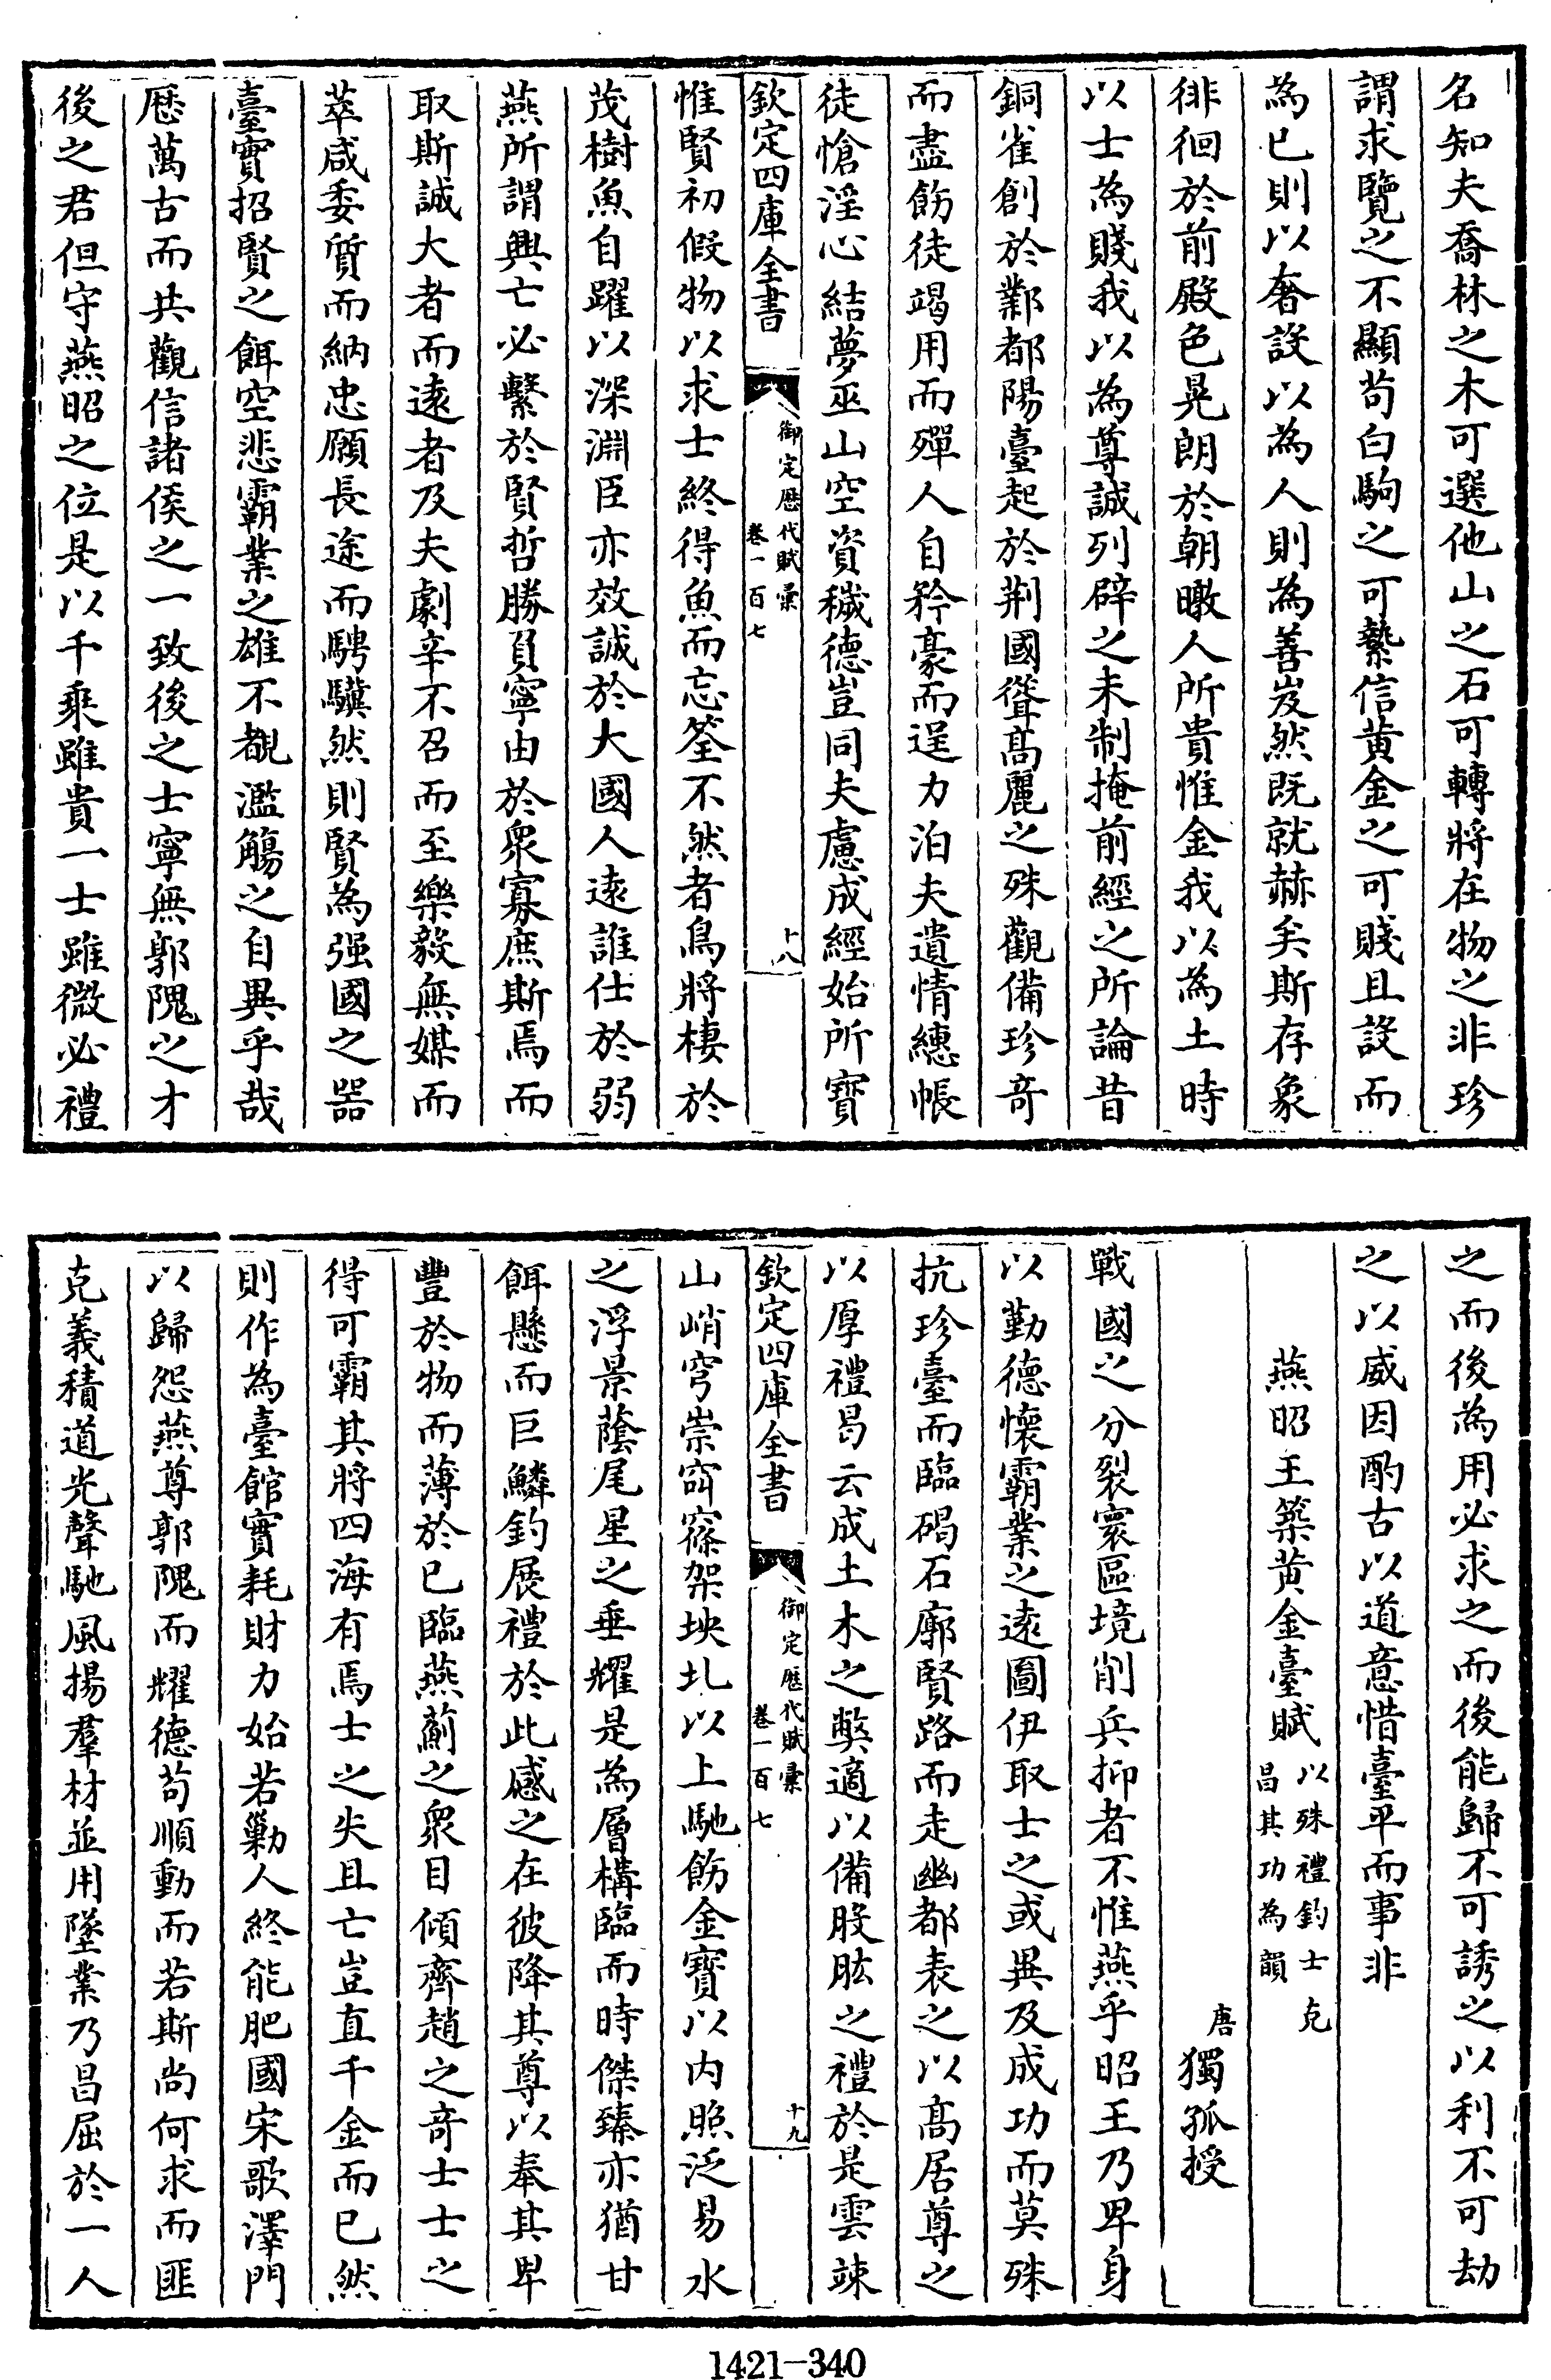 名知夫喬林之木可選他山之石可轉將在物之非珍
謂求覽之不顯苟白駒之可縶信黄金之可賤且設而
為已則以奢設以為人則為善岌然既就赫矣斯存象
徘徊於前殿色晃朗於朝暾人所貴惟金我以為土時
以士為賤我以為尊誠列辟之未制掩前經之所論昔
銅雀創於鄴都陽臺起於荆國聳髙麗之殊觀備珍竒
而盡飭徒竭用而殫人自矜豪而逞力泊夫遺情繐帳
徒愴淫心結夢巫山空資穢德豈同夫慮成經始所寳
欽定四庫全書
御定歴代賦彙
卷一百七
十八
惟賢初假物以求士終得魚而忘筌不然者鳥將棲於
茂樹魚自躍以深淵臣亦效誠於大國人逺誰仕於弱
燕所謂興亡必繫於賢哲勝負寧由於衆寡庶斯焉而
取斯誠大者而逺者及夫劇辛不召而至樂毅無媒而
萃咸委質而納忠願長途而騁驥然則賢為强國之器
臺實招賢之餌空悲霸業之雄不覩濫觴之自異乎哉
歴萬古而共觀信諸侯之一致後之士寧無郭隗之才
後之君但守燕昭之位是以千乘雖貴一士雖微必禮
之而後為用必求之而後能歸不可誘之以利不可劫
之以威因酌古以道意惜臺平而事非
燕昭王築黄金臺賦
以殊禮釣士克
昌其功為韻
唐獨孤授
戰國之分裂寰區境削兵抑者不惟燕乎昭王乃卑身
以勤德懷霸業之逺圖伊取士之或異及成功而莫殊
抗珍臺而臨碣石廓賢路而走幽都表之以髙居尊之
以厚禮曷云成土木之弊適以備股肱之禮於是雲竦
欽定四庫全書
御定歴代賦彙
卷一百七
十九
山峭穹崇窅窱架坱圠以上馳飭金寳以内照泛易水
之浮景蔭尾星之垂耀是為層構臨而時傑臻亦猶甘
餌懸而巨鱗釣展禮於此感之在彼降其尊以奉其卑
豐於物而薄於已臨燕薊之衆目傾齊趙之竒士士之
得可霸其將四海有焉士之失且亡豈直千金而已然
則作為臺館實耗財力始若勦人終能肥國宋歌澤門
以歸怨燕尊郭隗而耀德苟順動而若斯尚何求而匪
克義積道光聲馳風揚羣材並用墜業乃昌屈於一人
1421-340